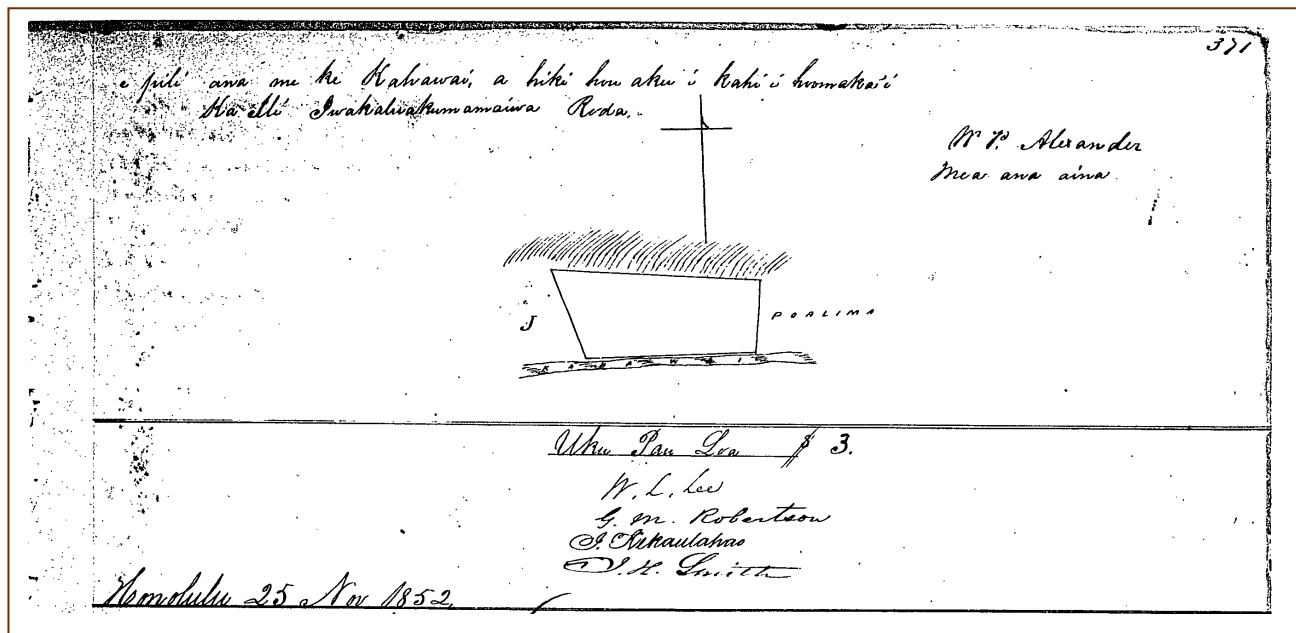 371
e pili ana me ke Kahawai, a hiki hou aku i kahi i hoomaka'i
Ka Ili Iwakaluakumamaiwa Roda.
W. P. Alexander
Mea ana aina.
J
POALIMA
KAHAWAI
Uku Pau Loa $ 3.
W. L. Lee
G. M. Robertson
J. Kekaulahao
J. H. Smith
Honolulu 25 Nov 1852.